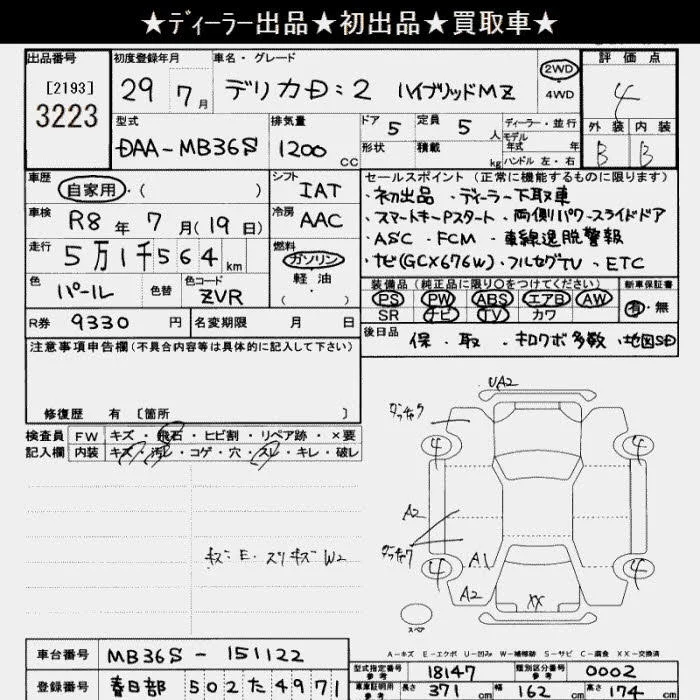 ★ディーラー出品★初出品★買取車★
出品番号 初度登録年月 車名・グレード 評価点
[2193] 3223 29年7月 デリカD:2 ハイブリッドMZ 2WD 4WD 4
型式 排気量 ドア 5 定員 5人 ディーラー・並行 外装 内装
DAA-MB36S 1200cc 形状 積載 kg モデル年式 年 ハンドル 左・右 B B
車歴 自家用・( ) シフト IAT セールスポイント (正常に機能するものに限ります)
・初出品 ・ディーラー下取車
車検 R8年7月(19日) 冷房 AAC ・スマートキーPスタート ・両側パワースライドドア
・ASC ・FCM ・車線逸脱警報
走行 5万1千564km 燃料 ガソリン 軽油 ( ) ・ナビ(GCX676W) ・フルセグTV ・ETC
色 パール 色替 色コード ZVR 装備品 (純正品に限り○をつけてください) 新車保証書
PS PW ABS エアB AW 有・無
SR ナビ TV カワ
R券 9330円 名変期限 月 日 後日品 保・取・キロクボ多数・地図SD
注意事項申告欄(不具合内容等は具体的に記入して下さい)
修復歴 有 [箇所 ]
検査員 FW キズ・飛石・ヒビ割・リペア跡・×要
記入欄 内装 キズ・汚レ・コゲ・穴・スレ・キレ・破レ
キズE・スリキズW2
UA2
タッチアク
4 4
A2
タッチアク
4 A1 4
A2 XX
スペア
A-キズ E-エクボ U-凹み W-補修跡 S-サビ C-腐食 XX-交換済
車台番号 MB36S-151122 型式指定番号 参考 18147 類別区分番号 参考 0002
登録番号 春日部 502た4971 車庫証明用 参考 長さ 371cm 幅 162cm 高さ 174cm